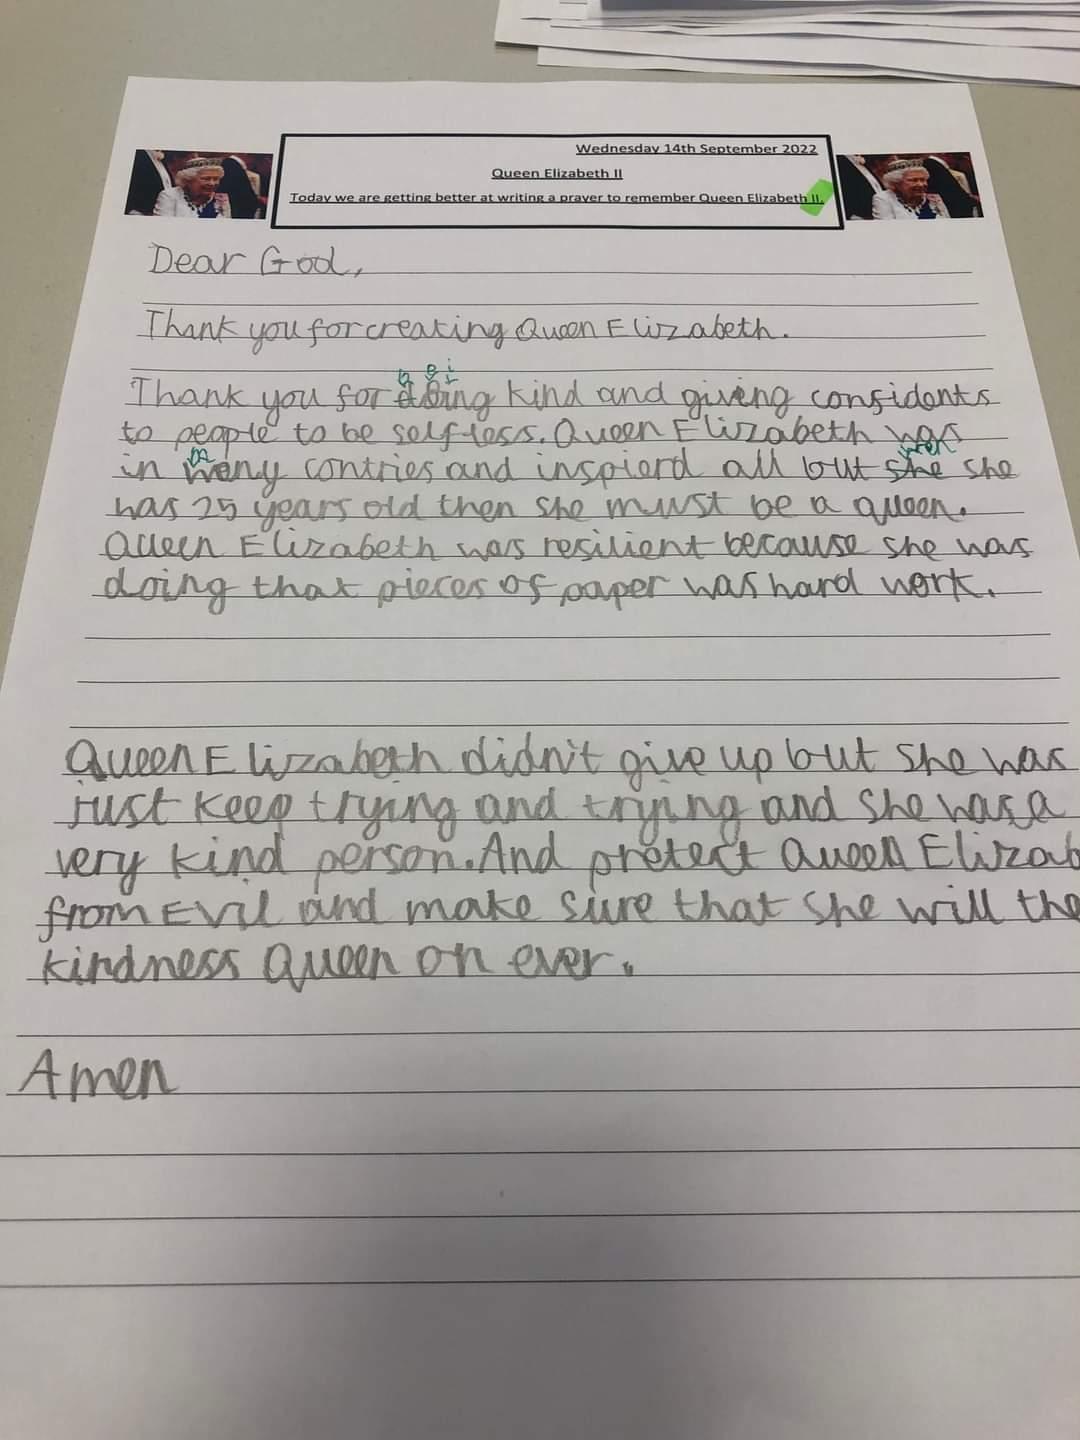 Wednesday 14th September 2022
Queen Elizabeth II
Today we are getting better at writing a prayer to remember Queen Elizabeth II.
Dear God,
Thank you for creating Queen Elizabeth.
Thank you for being kind and giving confidents
to people to be selfless. Queen Elizabeth was
in many contries and inspierd all but when she
was 25 years old then she must be a queen.
Queen Elizabeth was resilient because she was
doing that pieces of paper was hard work.
Queen Elizabeth didn't give up but she was
just keep trying and trying and she was a
very kind person. And pretect Queen Elizab
from Evil and make sure that she will the
kindness Queen on ever.
Amen